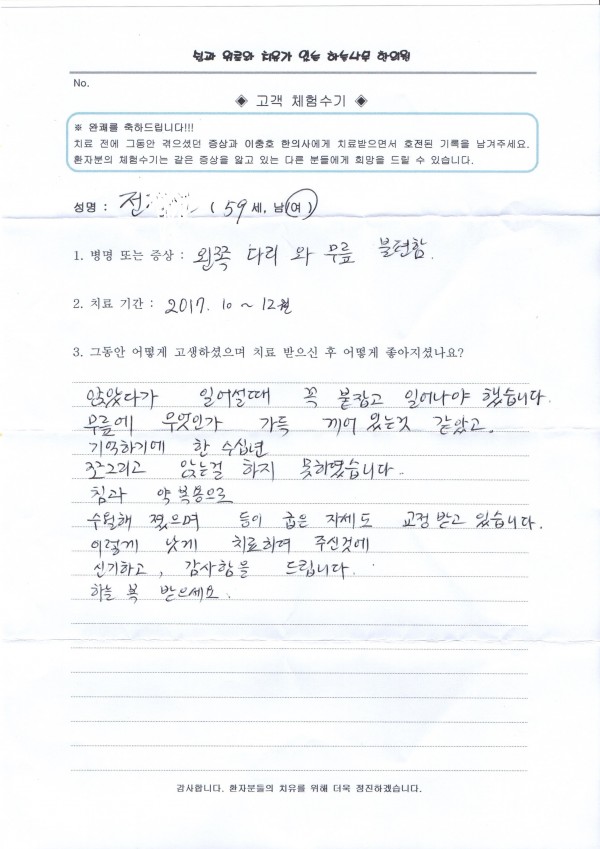 쉼과 위로와 치유가 있는 하늘나무 한의원
No.
◈ 고객 체험수기 ◈
※ 완쾌를 축하드립니다!!!
치료 전에 그동안 겪으셨던 증상과 이충호 한의사에게 치료받으면서 호전된 기록을 남겨주세요.
환자분의 체험수기는 같은 증상을 앓고 있는 다른 분들에게 희망을 드릴 수 있습니다.
성명 : 전 ( 59 세, 남 여 )
1. 병명 또는 증상 : 왼쪽 다리 와 무릎 불편함.
2. 치료 기간 : 2017. 10 ~ 12월
3. 그동안 어떻게 고생하셨으며 치료 받으신 후 어떻게 좋아지셨나요?
앉았다가 일어설때 꼭 붙잡고 일어나야 했습니다.
무릎에 무엇인가 가득 끼어 있는것 같았고.
기억하기에 한 수십년
쪼그리고 앉는걸 하지 못하였습니다..
침과 약 복용으로
수월해 졌으며 등이 굽은 자세도 교정 받고 있습니다.
이렇게 낫게 치료하여 주신것에
신기하고, 감사함을 드립니다.
하늘 복 받으세요.
감사합니다. 환자분들의 치유를 위해 더욱 정진하겠습니다.